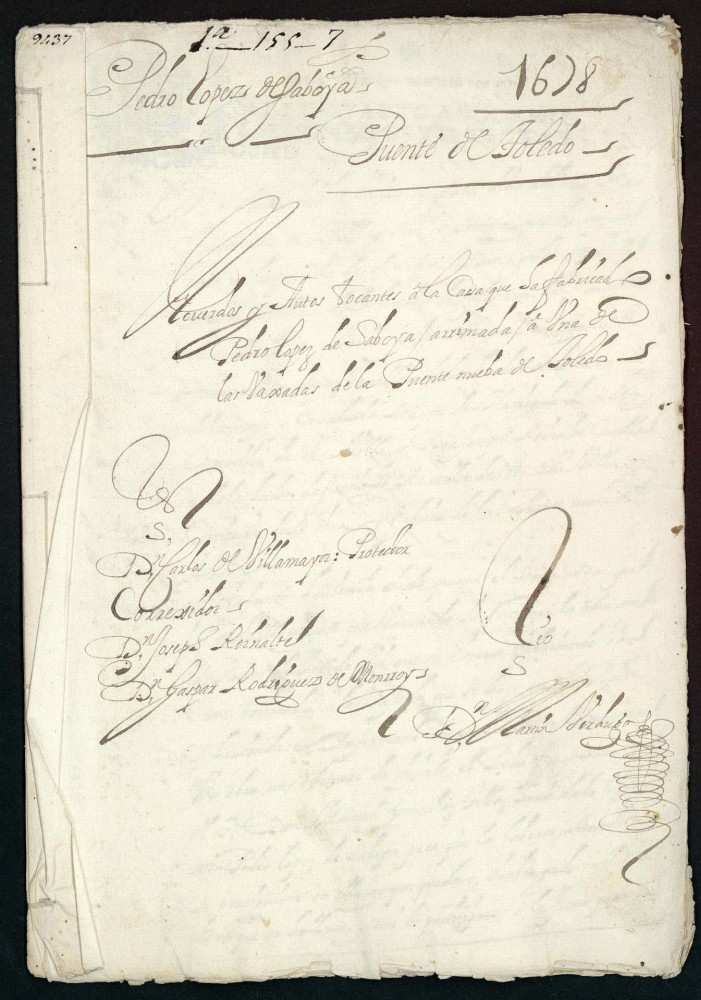 9437
1ª-155-7
Pedro Lopez de Saboya
1678
Puente de Toledo
Acuerdos y Autos tocantes a la Casa que ha fabricado
Pedro Lopez de Saboya / arrimada / a Una de
las Vaxadas de la Puente nueba de Toledo
SS
Dn. Carlos de Villamayor: Protector
Correxidor
Dn. Joseph Reinalte
Dn. Gaspar Rodriguez de Monrroy
SS
Dn. Martin Verdugo